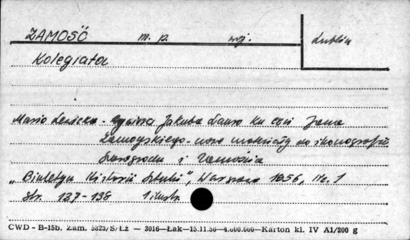 ZAMOŚĆ m. p. woj. Lublin
Kolegiata
Maria Lewicka - Jakuba Lauro ku czci Jana
Zamoyskiego - nowe do ikonografii
Szarogrodu i Zamościa
„Biuletyn Historii Sztuki", Warszawa 1956, Nr. 1
Str. 127-136 1 ilustr.
CWD - B-15b. Zam. 5823/S/Lz — 3016—Łak—15.11.56—4.000.000—Karton kl. IV A1/200 g